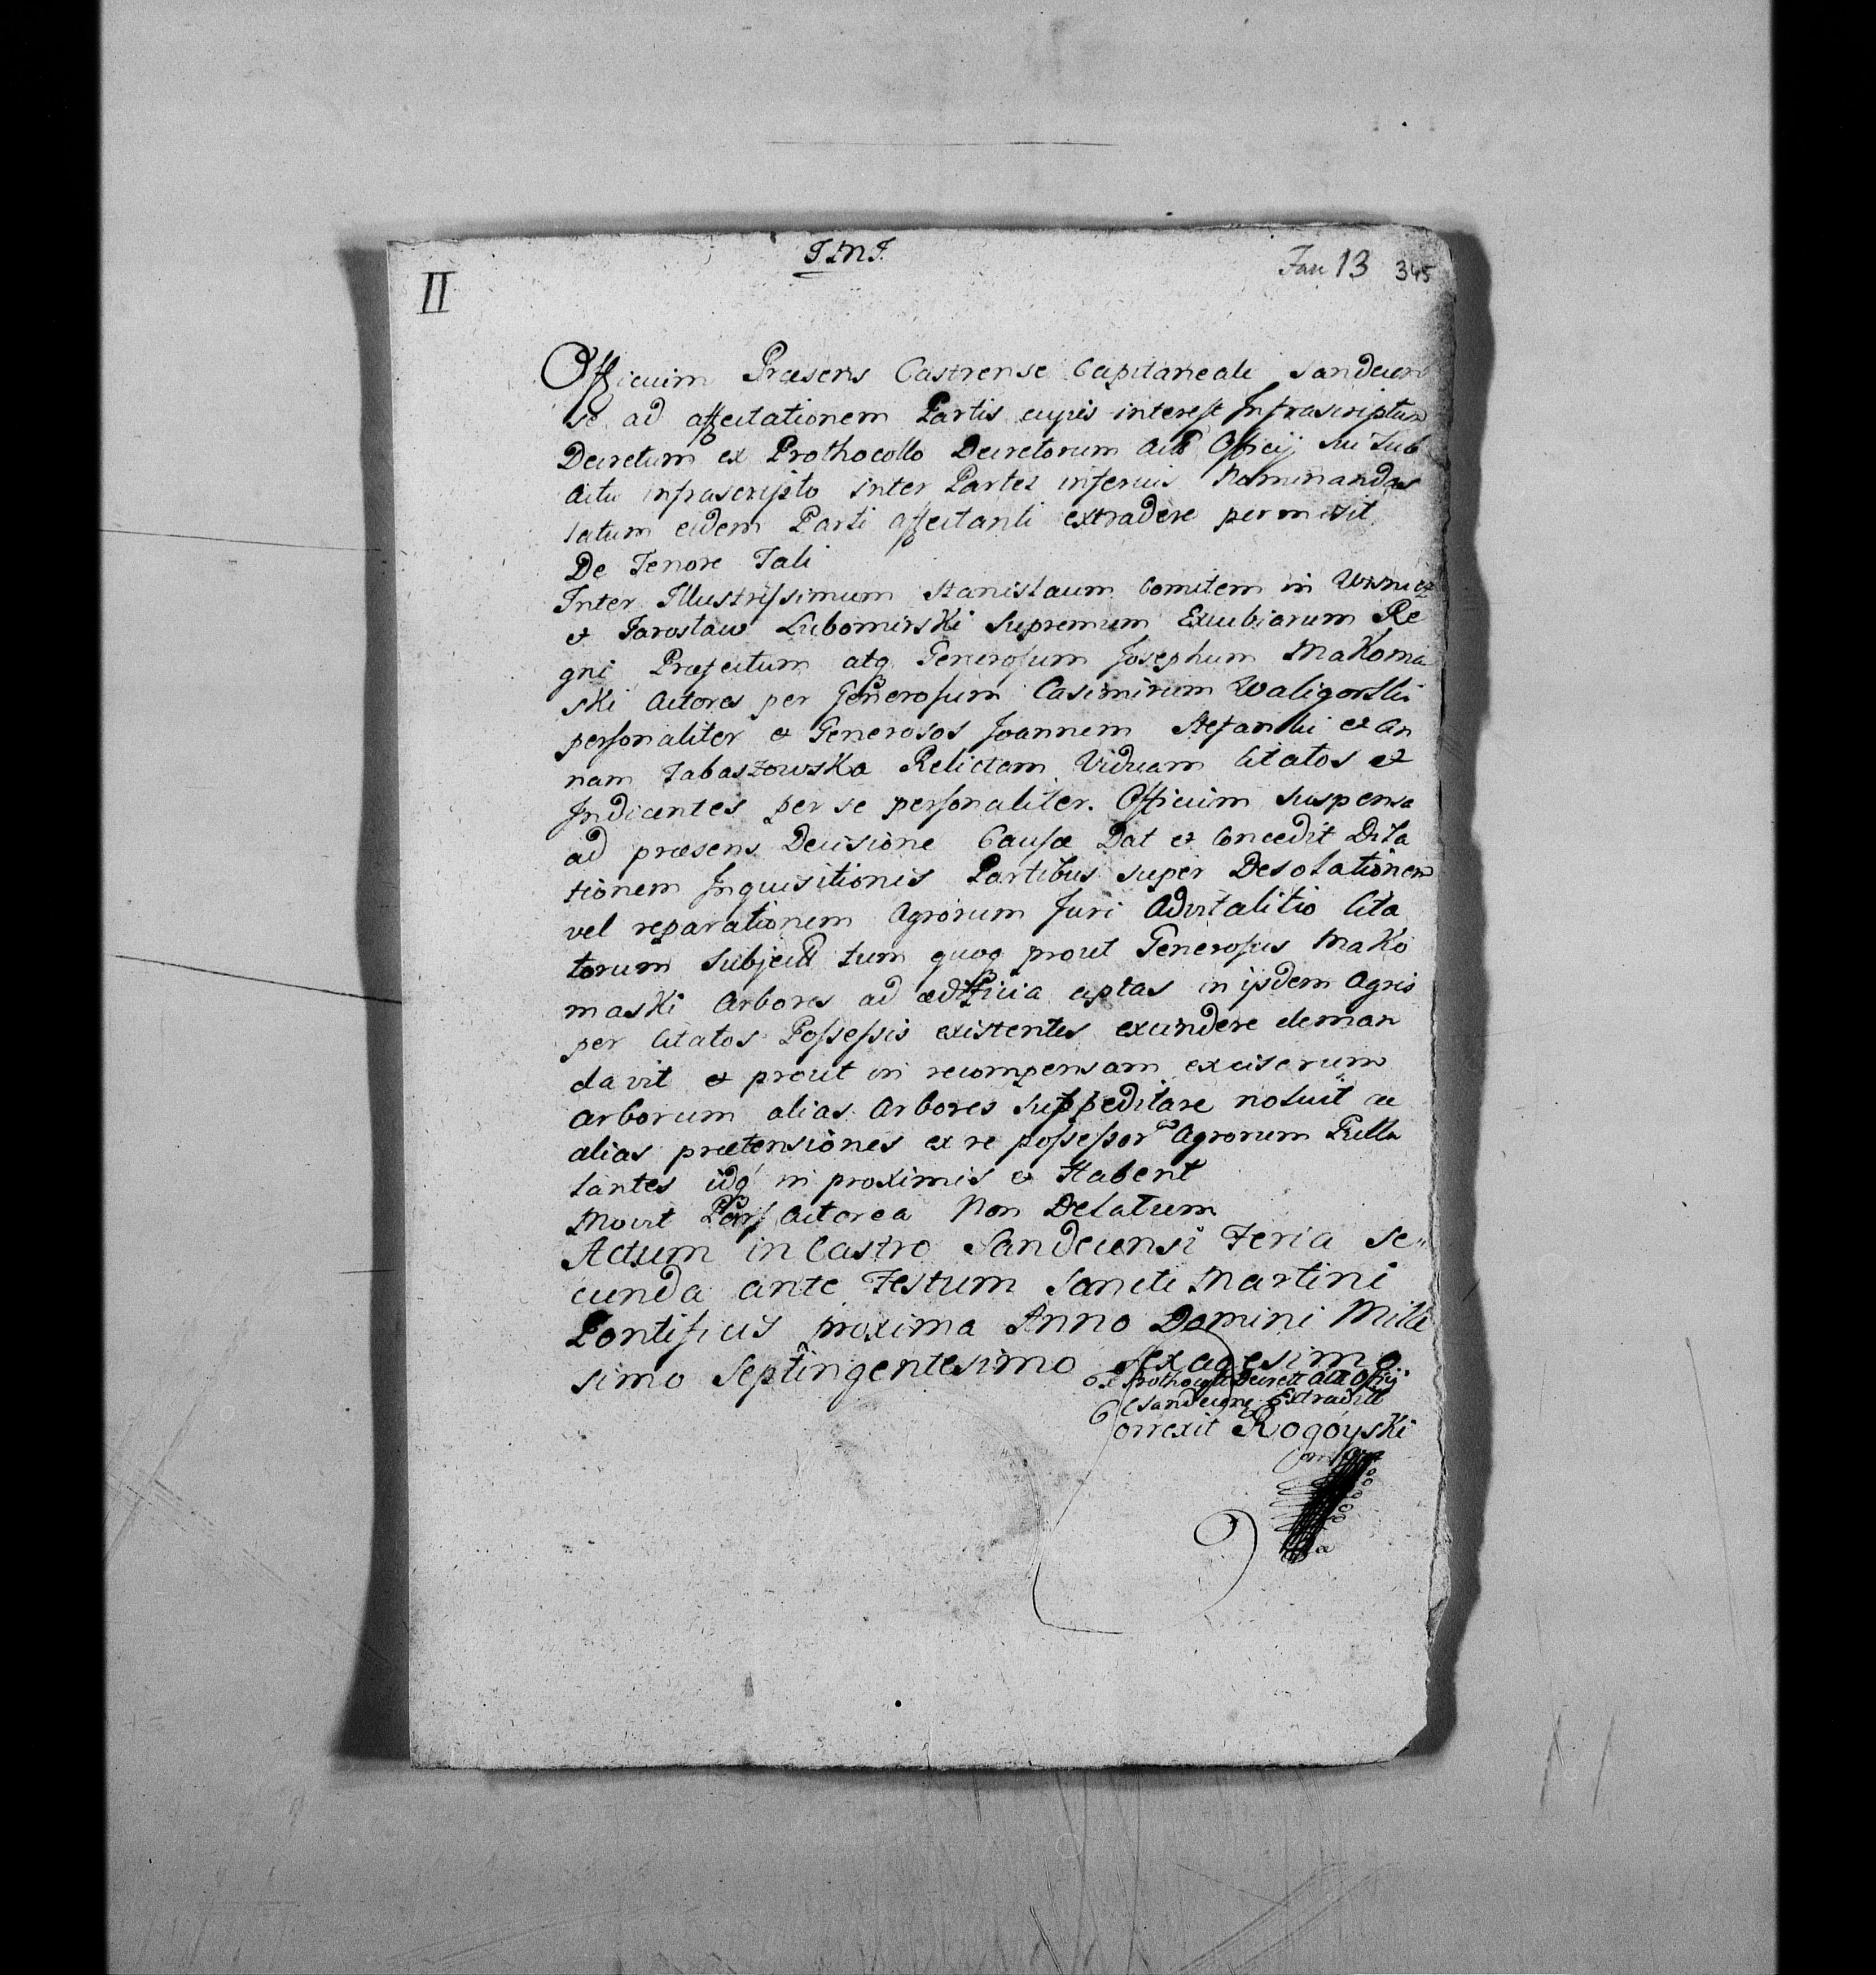 J.M.J.
Fau 13 345
II
Officium Præsens Castrense Capitaneale Sandecen
se ad affectationem Partis cujus interest Infrascriptum
Decretum ex Prothocollo Decretorum Officij sui Sub
actu infrascripto inter Partes inferius Nominandas
latum eidem Parti affectanti extradere permisit
De Tenore Tali
Inter Illustrissimum Stanislaum Comitem in Wisnicz
et Jaroslaw Lubomirski Supremum Excubiarum Re
gni Præfectum atq Generosum Josephum Makoma
ski Actores per Generosum Casimirum Waligorski
personaliter et Generosos Joannem Stefanski et An
nam Tabaszowska Relictam Viduam Citatos et
Indicentes per se personaliter. Officium suspensa
ad præsens Decisione Causæ Dat et Concedit Dila
tionem Inquisitionis Partibus super Desolationem
vel reparationem Agrorum Juri Advitalitio Cita
torum Subject tum quoq prout Generosus Mako
maski Arbores ad ædificia aptas in ijsdem Agris
per Citatos Possessis existentes excindere deman
davit et prout in recompensam exciserum
Arborum alias Arbores suppeditare noluit ac
alias prætensiones ex re possessor Agrorum Pullu
lantes idq in proximis et Habent
Movit Pars Actorea Non Delatum
Actum in Castro Sandecensi Feria Se
cunda ante Festum Sancti Martini
Pontificis proxima Anno Domini Mille
simo Septingentesimo Sexagesimo
Ex Prothocollo Decret Officij
Sandecen Extradit
Correxit Rogóyski